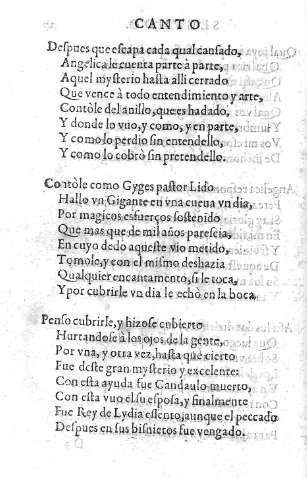 CANTO
Despues que escapa cada qual cansado,
Angelica le cuenta parte à parte,
Aquel mysterio hasta alli cerrado
Que vence à todo entendimiento y arte,
Contòle del anillo, que es hadado,
Y donde lo vuo, y como, y en parte,
Y como lo perdio sin entendello,
Y como lo cobrò sin pretendello.
Contòle como Gyges pastor Lido
Hallo vn Gigante en vna cueua vn dia,
Por magicos esfuerços sostenido
Que mas que de mil años parescia,
En cuyo dedo aqueste vio metido,
Tomole, y con el mismo deshazia
Qualquier encantamento, si le toca,
Y por cubrirle vn dia le echò en la boca.
Penso cubrirle, y hizose cubierto
Hurtandose à los ojos de la gente,
Por vna, y otra vez, hasta que cierto
Fue deste gran mysterio y excelente:
Con esta ayuda fue Candaulo muerto,
Con esta vuo el su esposa, y finalmente
Fue Rey de Lydia essento, aunque el peccado
Despues en sus bisnietos fue vengado.